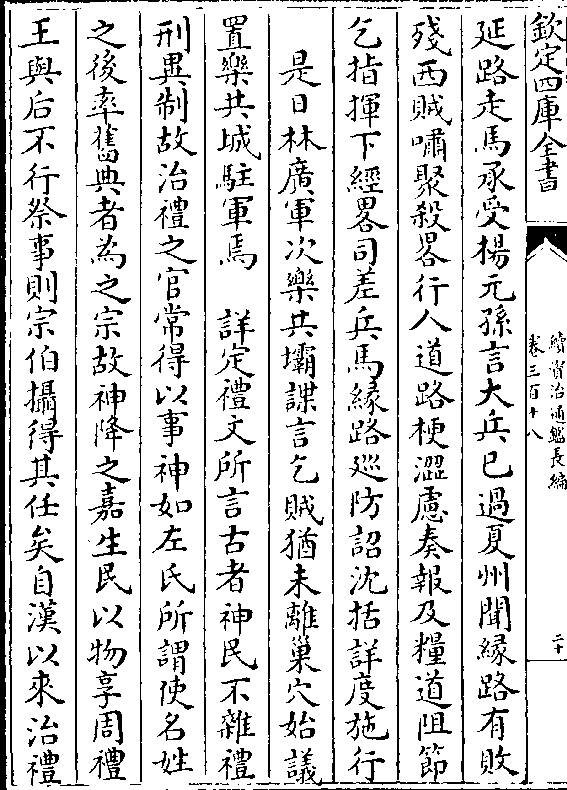 欽定四庫全書
續資治通鑑長編
卷三百十八
二十
延路走馬承受楊元孫言大兵已過夏州聞緣路有敗
殘西賊嘯聚殺畧行人道路梗澀慮奏報及糧道阻節
乞指揮下經畧司差兵馬緣路廵防詔沈括詳度施行
是日林廣軍次樂共壩諜言乞賊猶未離巢穴始議
置樂共城駐軍焉　詳定禮文所言古者神民不雜禮
刑異制故治禮之官常得以事神如左氏所謂使名姓
之後率舊典者為之宗故神降之嘉生民以物享周禮
王與后不行祭事則宗伯攝得其任矣自漢以來治禮